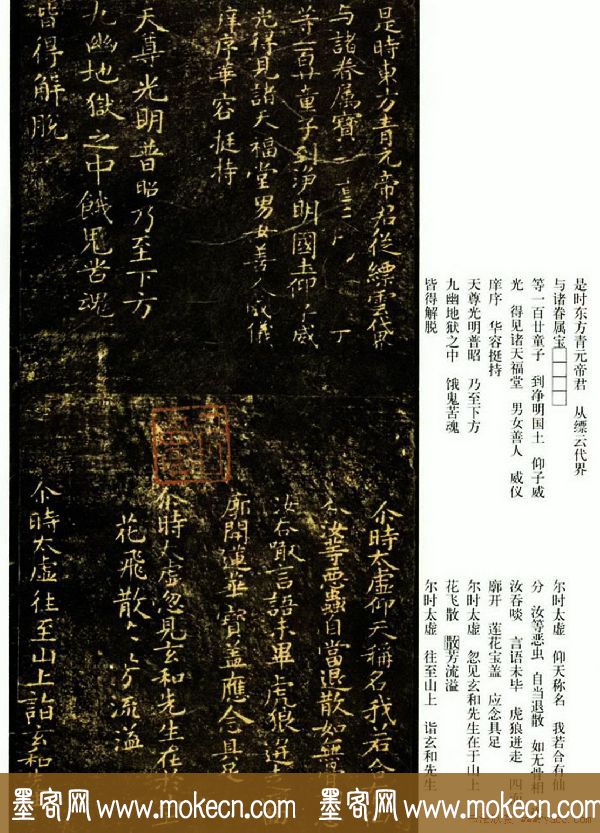 是時東方青元帝君從縹雲代界
与諸眷属寶
等一百廿童子到淨明國土仰子威
光得見諸天福堂男女善人威儀
庠序華容挺持
天尊光明普昭乃至下方
九幽地獄之中餓鬼苦魂
皆得解脱
尒時太虚仰天稱名我若合有仙
汝等惡蟲自當退散如無骨
汝吞噉言語未畢虎狼迸走
廓開蓮華寶盖應念具足
尒時太虚忽見玄和先生在於山上
花飛散散芳流溢
尒時太虚往至山上詣玄和先生
是时东方青元帝君 从缥云代界
与诸眷属宝□□□□
等一百廿童子 到净明国土 仰子威
光 得见诸天福堂 男女善人 威仪
庠序 华容挺持
天尊光明普昭 乃至下方
九幽地狱之中 饿鬼苦魂
皆得解脱
尔时太虚 仰天称名 我若合有仙
分 汝等恶虫 自当退散 如无骨相
汝吞啖 言语未毕 虎狼迸走 四
廓开 莲花宝盖 应念具足
尔时太虚 忽见玄和先生在于山上
花飞散 散芳流溢
尔时太虚 往至山上 诣玄和先生
墨客网 www.mokecn.com 墨客网 www.mokecn.com